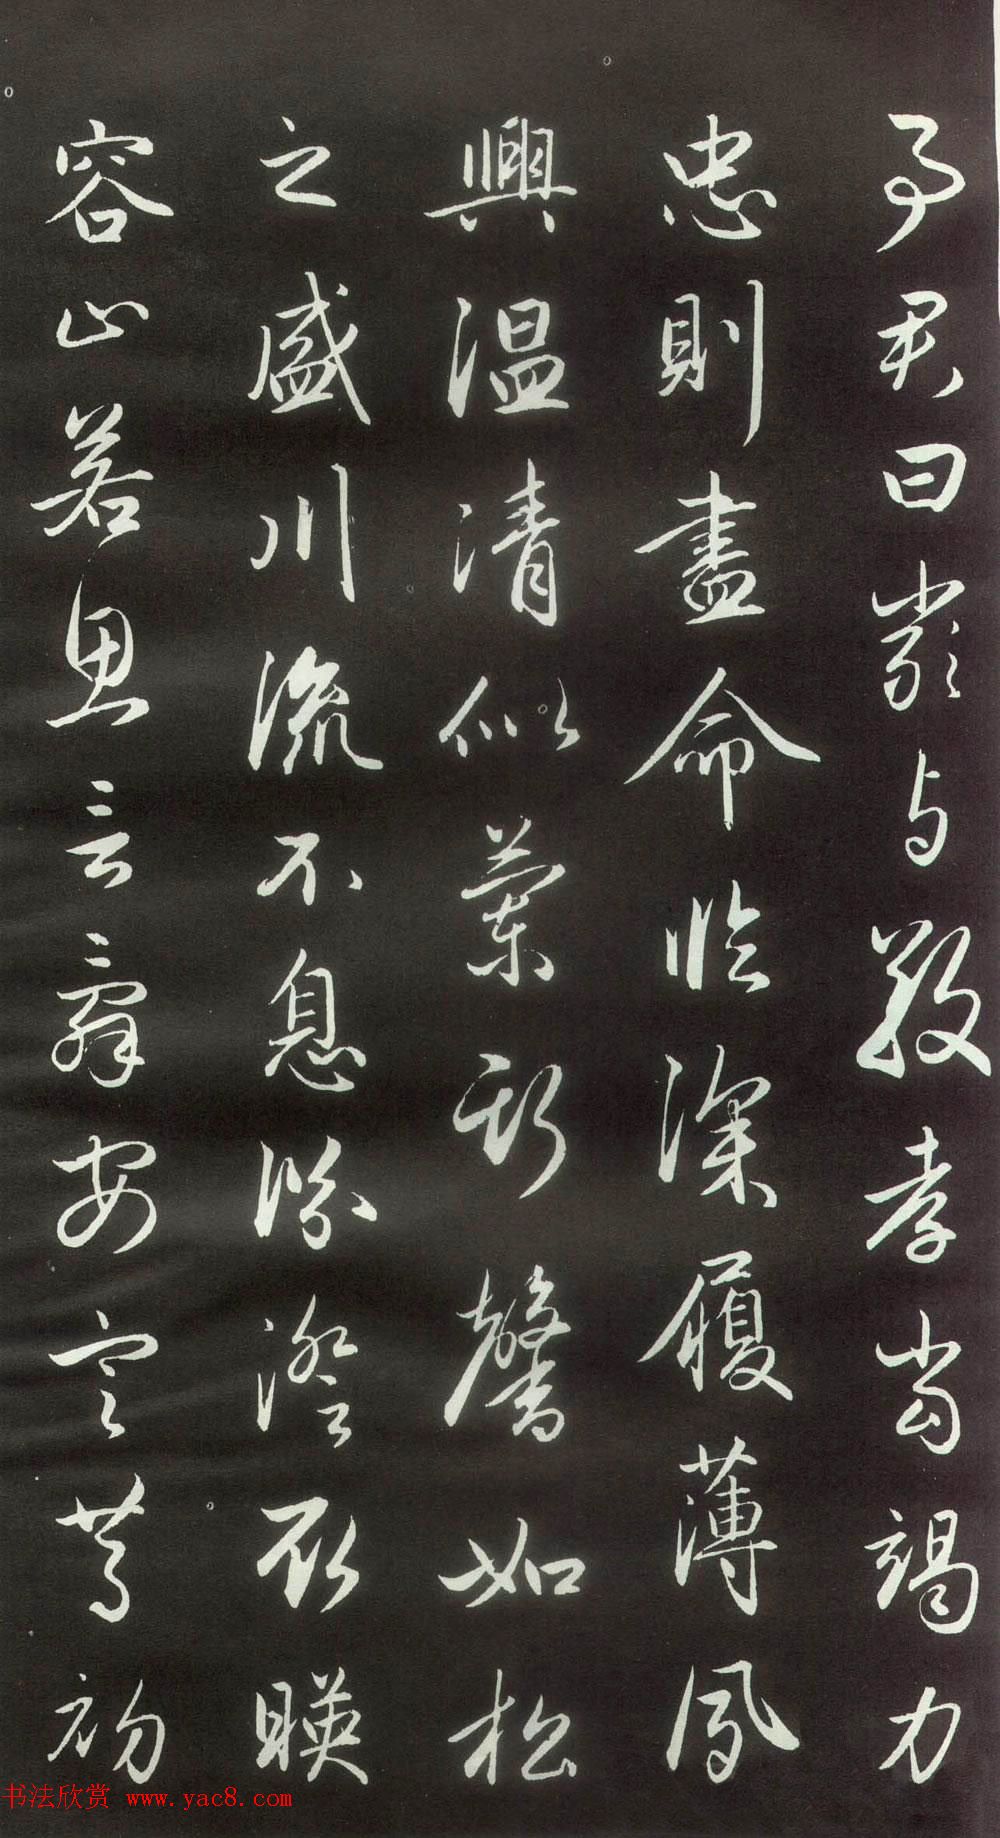 事君曰嚴与敬孝當竭力
忠則盡命臨深履薄夙
興温清似蘭斯馨如松
之盛川流不息淵澄取暎
容止若思言辞安定篤初
书法欣赏 www.yac8.com